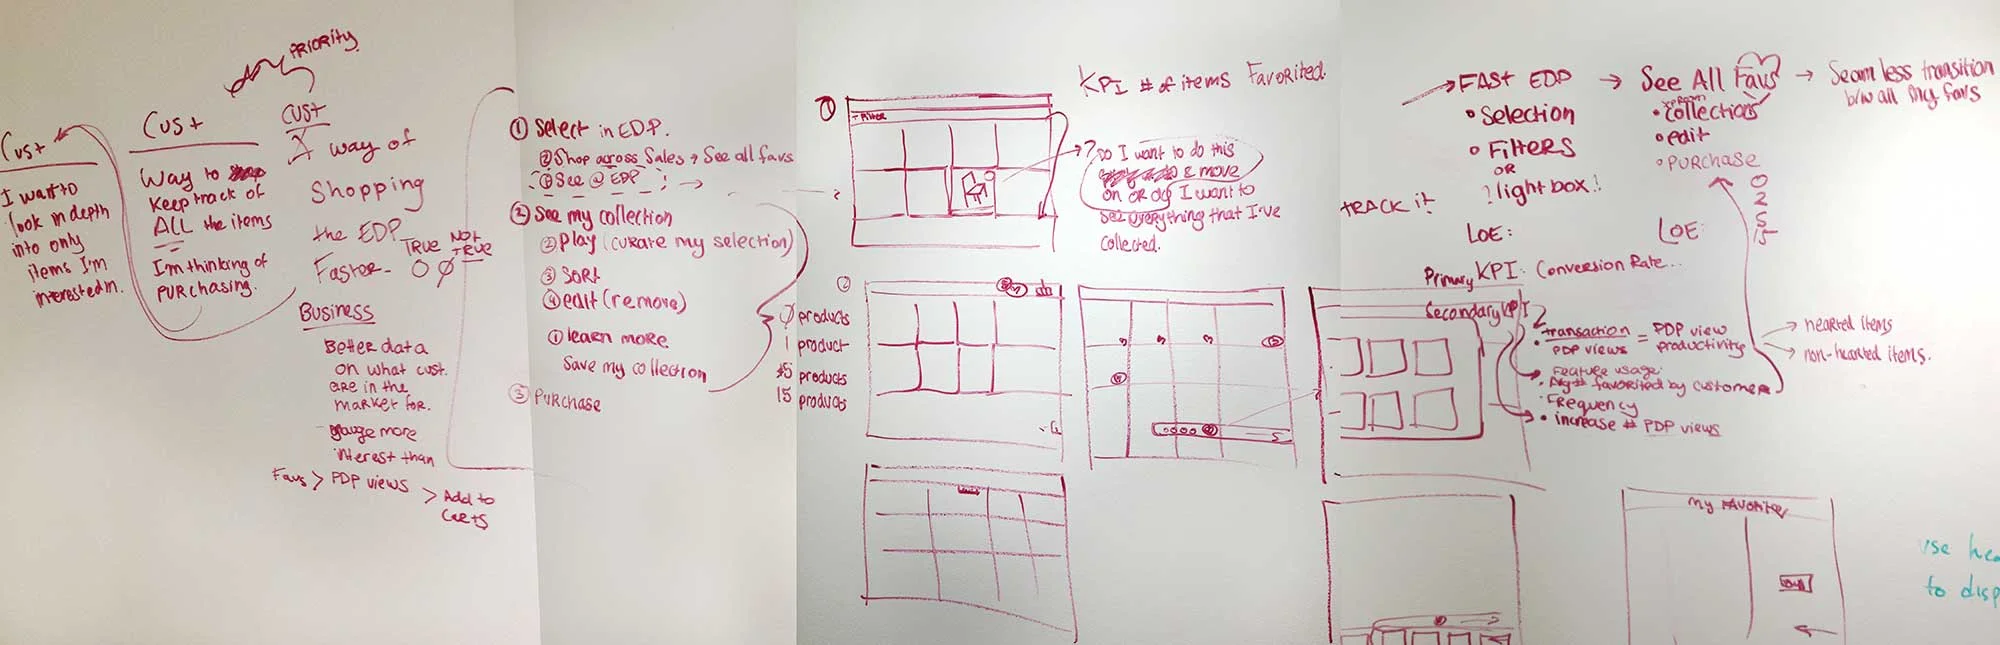 PRIORITY
Cust
I want to
look in depth
into only
items I'm
interested in.
Cust
Way to
keep track of
ALL the items
I'm thinking of
purchasing.
CUST
A way of
Shopping
the EDP
Faster-
TRUE
NOT
TRUE
Business
Better data
on what cust.
are in the
market for.
gauge more
interest than
Favs > PDP views > Add to
Carts
① Select in EDP.
② Shop across Sales → See all favs
① See @ EDP →
② See my collection
② Play (curate my selection)
③ Sort
④ edit (remove)
① learn more
Save my collection
③ Purchase
0 products
1 product
5 products
15 products
KPI # of items Favorited.
①
+ Filter
? Do I want to do this
& move
on OR do I want to
see everything that I've
collected.
②
→ FAST EDP → See All Favs → Seamless transition
b/w all my favs
• Selection
• Filters
OR
! lightbox!
collections
• edit
• PURCHASE
0
2
5
15
TRACK it
LOE:
LOE:
Primary KPI: Conversion Rate...
Secondary KPI
• transaction = PDP view
PDP views productivity
Feature usage:
• Avg # favorited by customer
Frequency
• increase # PDP views
→ hearted items
→ non-hearted items.
my Favorites
use hea
to disp